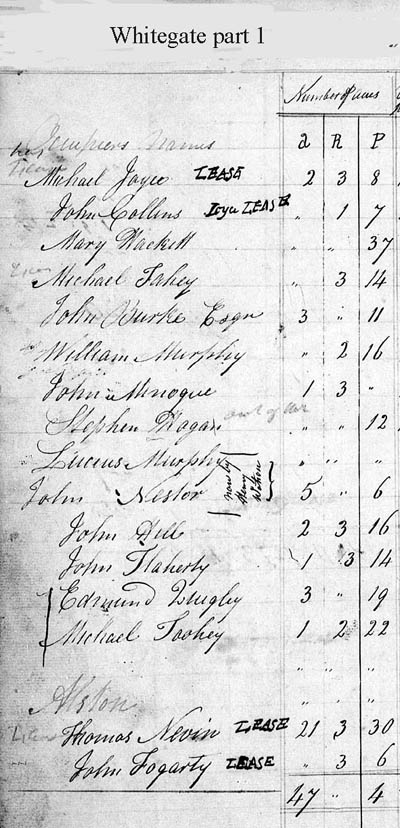 Whitegate part 1
Number of acres
Occupiers Names a R P
Michael Joyce LEASE 2 3 8
John Collins Joyce LEASE " 1 7
Mary Hackett " " 37
Michael Fahey " 3 14
John Burke Esqr 3 " 11
William Murphy " 2 16
John Minogue 1 3 "
Stephen Hogan out of lease " " 12
Lucius Murphy " " "
John Nestor 5 " 6
John Hill 2 3 16
John Flaherty 1 3 14
Edmund Quigley 3 " 19
Michael Toohey 1 2 22
" " "
Alston " " "
Thomas Nevin LEASE 21 3 30
John Fogarty LEASE " 3 6
47 " 4